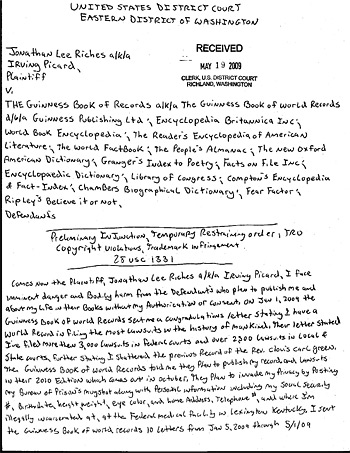 UNITED STATES DISTRICT COURT
EASTERN DISTRICT OF WASHINGTON
Jonathan Lee Riches a/k/a
Irving Picard,
Plaintiff
RECEIVED
MAY 19 2009
CLERK, U.S. DISTRICT COURT
RICHLAND, WASHINGTON
V.
THE GUINNESS BOOK OF RECORDS a/k/a The Guinness Book of World Records
d/b/a Guinness Publishing Ltd; Encyclopedia Britannica Inc;
World Book Encyclopedia; The Reader's Encyclopedia of American
Literature; The World FactBook; The People's Almanac; The New Oxford
American Dictionary; Granger's Index to Poetry; Facts on File Inc;
Encyclopaedic Dictionary; Library of Congress; Compton's Encyclopedia
& Fact-Index; Chambers Biographical Dictionary; Fear Factor;
Ripley's Believe it or Not,
Defendants
Preliminary Injunction, Temporary Restraining order, TRO
Copyright Violations, Trademark infringement
28 USC 1331
Comes now the Plaintiff, Jonathan Lee Riches a/k/a Irving Picard, I face
imminent danger and Bodily harm from the Defendants who plan to publish me and
about my Life in their Books without my Authorization or consent. On Jan 1, 2009 the
Guinness Book of World Records sent me a Congradulations letter stating I have a
World Record in filing the most Lawsuits in the history of Mankind. Their letter stated
I've filed more than 3,000 Lawsuits in Federal Courts and over 2,500 Lawsuits in Local &
State courts, further stating I shattered the previous Record of the Rev. Clovis Carl Green.
The Guinness Book of World Records told me they plan to publish my record and Lawsuits
in their 2010 Edition which comes out in October. They plan to invade my Privacy by Posting
my Bureau of Prison's mugshot along with Personal information including my Social Security
#, Birthdate, height, weight, Eye color, and home Address, Telephone #, and where I'm
illegally incarcerated at, at the Federal Medical facility in Lexington Kentucky, I sent
the Guinness Book of world records 10 letters from Jan 5, 2009 through 5/1/09